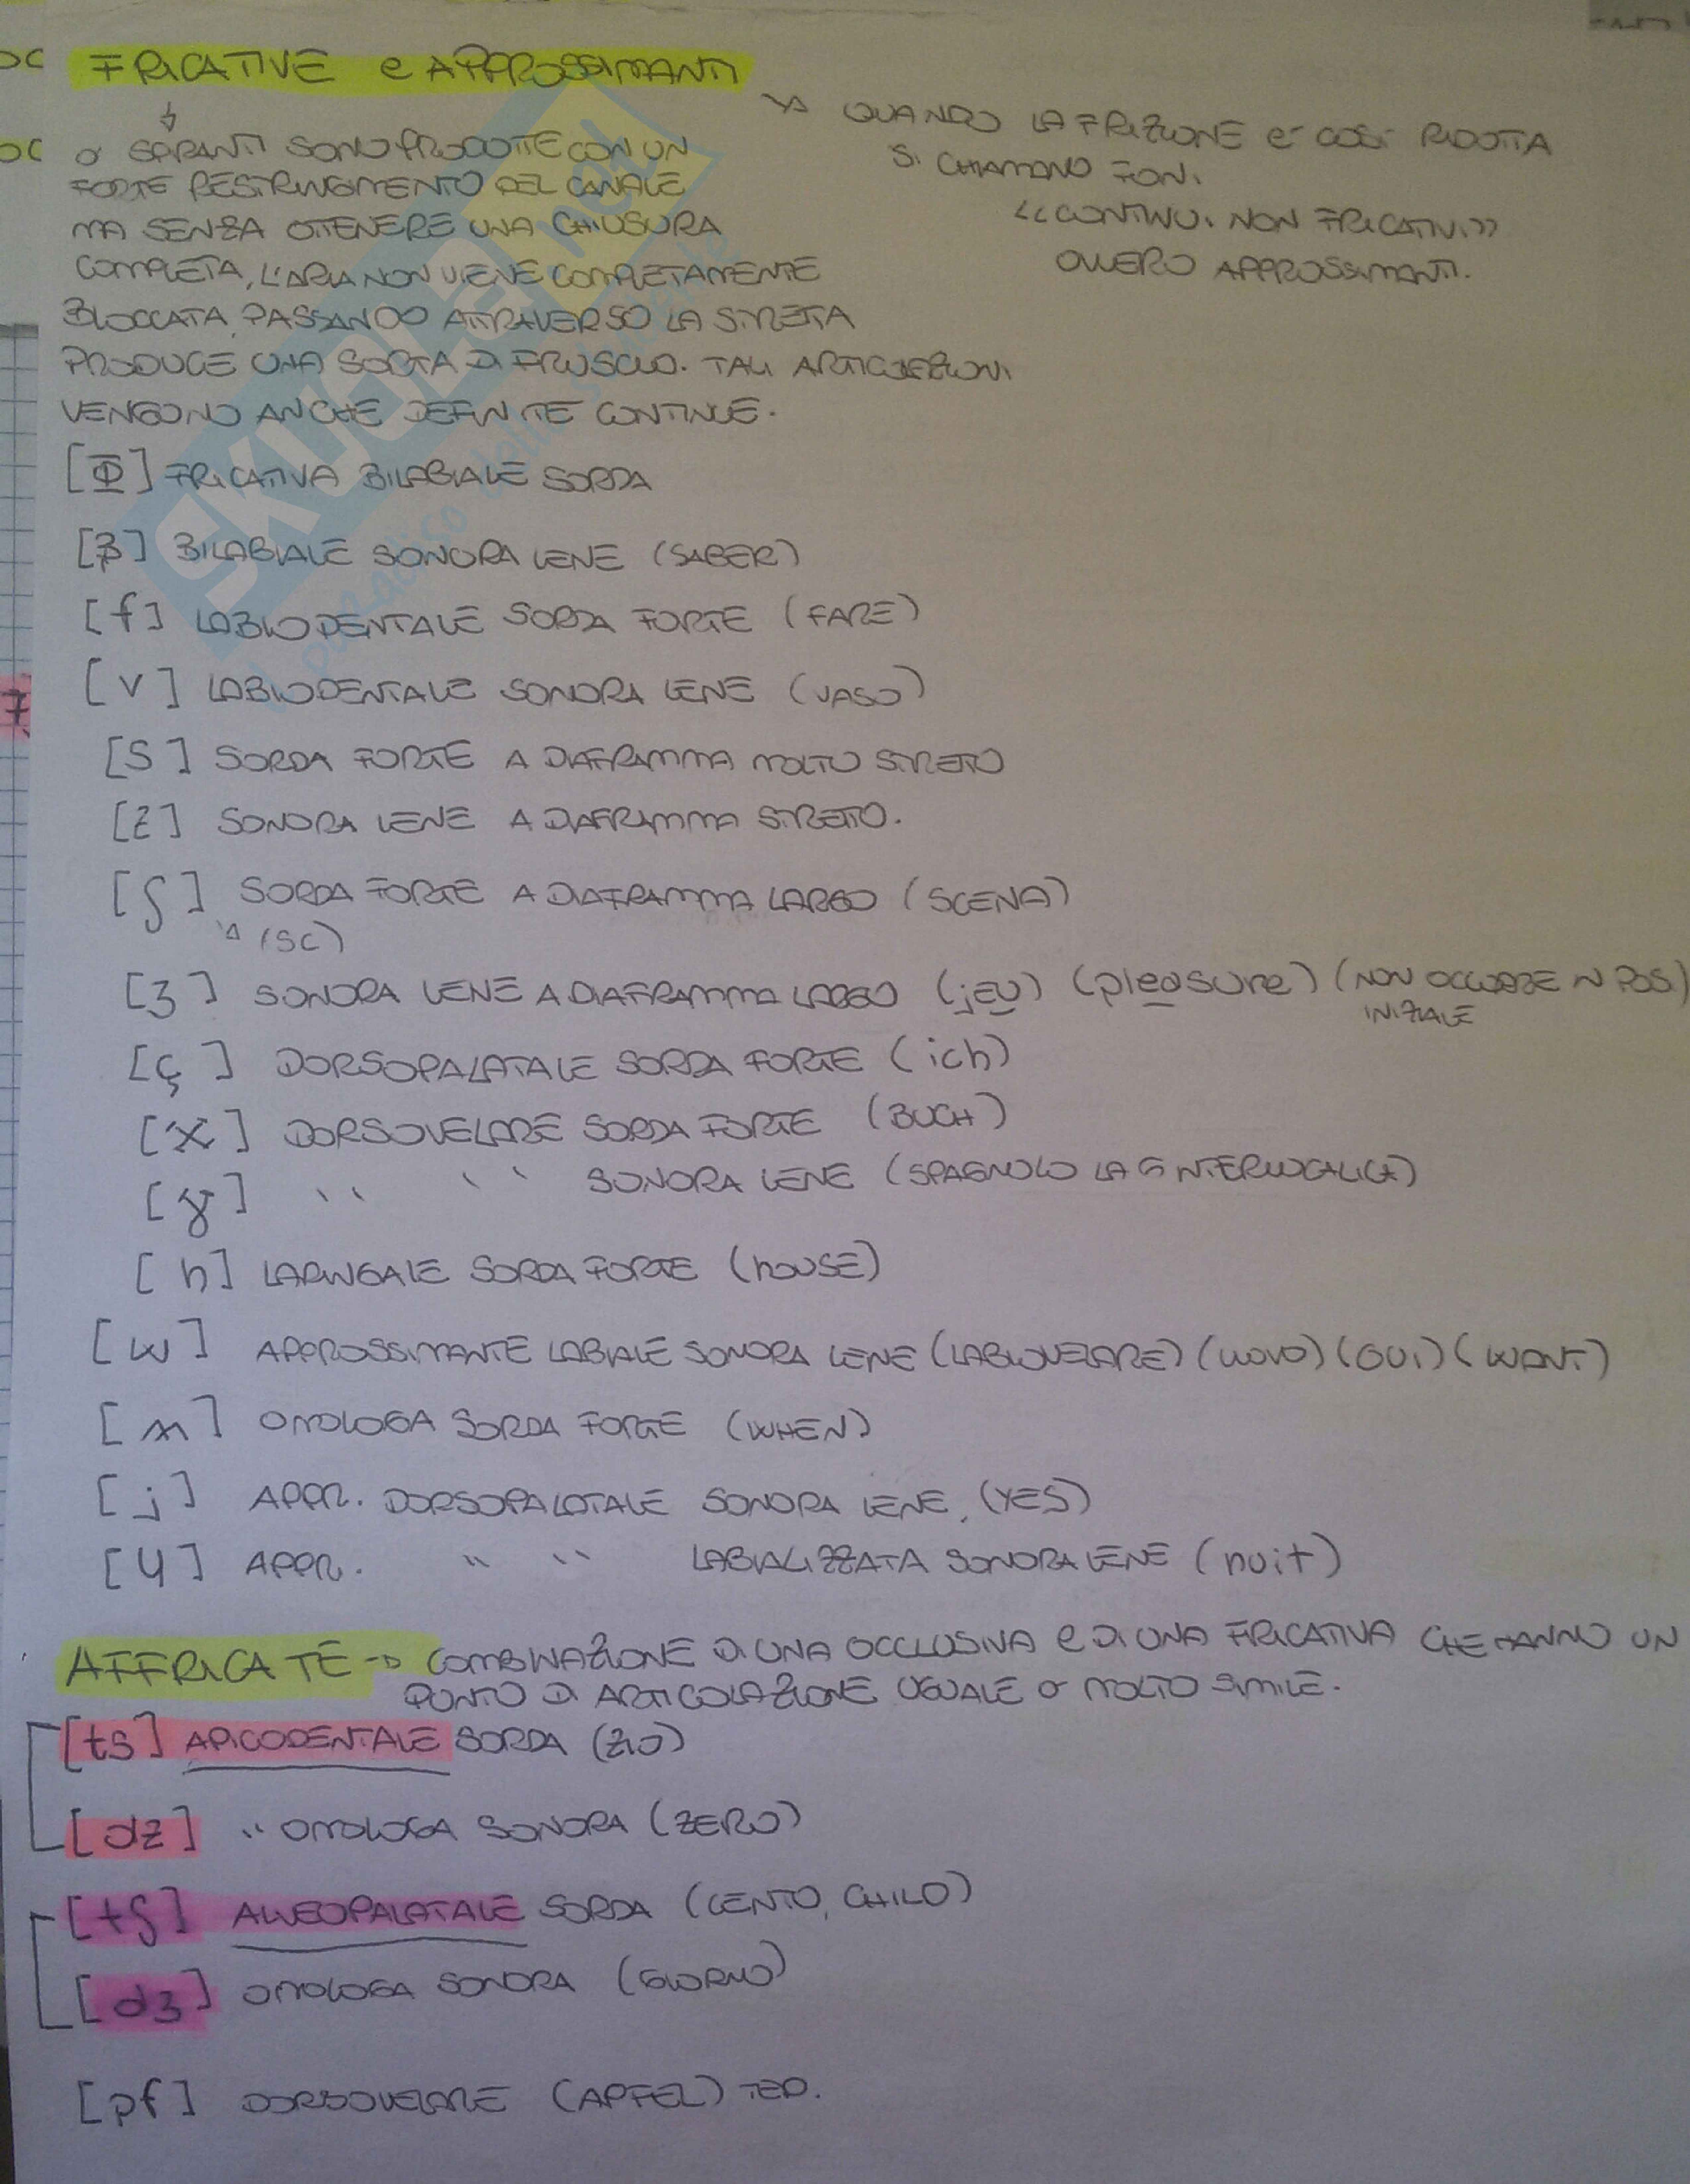 FRICATIVE e APPROSSIMANTI
→ QUANDO LA FRIZIONE E' COSI' RIDOTTA
SI CHIAMANO FONI
<<CONTINUI NON FRICATIVI>>
OVVERO APPROSSIMANTI.
↓
O SPIRANTI SONO PRODOTTE CON UN
FORTE RESTRINGIMENTO DEL CANALE
MA SENZA OTTENERE UNA CHIUSURA
COMPLETA, L'ARIA NON VIENE COMPLETAMENTE
BLOCCATA, PASSANDO ATTRAVERSO LA STRETTA
PRODUCE UNA SORTA DI FRUSCIO. TALI ARTICOLAZIONI
VENGONO ANCHE DEFINITE CONTINUE.
[Φ] FRICATIVA BILABIALE SORDA
[β] BILABIALE SONORA LENE (SABER)
[f] LABIODENTALE SORDA FORTE (FARE)
[v] LABIODENTALE SONORA LENE (VASO)
[S] SORDA FORTE A DIAFRAMMA MOLTO STRETTO
[z] SONORA LENE A DIAFRAMMA STRETTO.
[ʃ] SORDA FORTE A DIAFRAMMA LARGO (SCENA)
(SC)
[ʒ] SONORA LENE A DIAFRAMMA LARGO (jEU) (pleasure) (NON OCCORRE IN POS.)
INIZIALE
[ç] DORSOPALATALE SORDA FORTE (ich)
[x] DORSOVELARE SORDA FORTE (BUCH)
[ɣ] " " SONORA LENE (SPAGNOLO LA G INTERVOCALICA)
[h] LARINGALE SORDA FORTE (hOUSE)
[w] APPROSSIMANTE LABIALE SONORA LENE (LABIOVELARE) (UOVO) (OUI) (WANT)
[ʍ] OMOLOGA SORDA FORTE (WHEN)
[j] APPR. DORSOPALATALE SONORA LENE, (YES)
[ɥ] APPR. " " LABIALIZZATA SONORA LENE (nuit)
AFFRICATE → COMBINAZIONE DI UNA OCCLUSIVA e DI UNA FRICATIVA CHE HANNO UN
PUNTO DI ARTICOLAZIONE UGUALE O MOLTO SIMILE.
[ts] APICODENTALE SORDA (ZIO)
[dz] " OMOLOGA SONORA (ZERO)
[tʃ] ALVEOPALATALE SORDA (CENTO, CHILO)
[dʒ] OMOLOGA SONORA (GIORNO)
[pf] DORSOVELARE (APFEL) TED.
SKUOLA.net